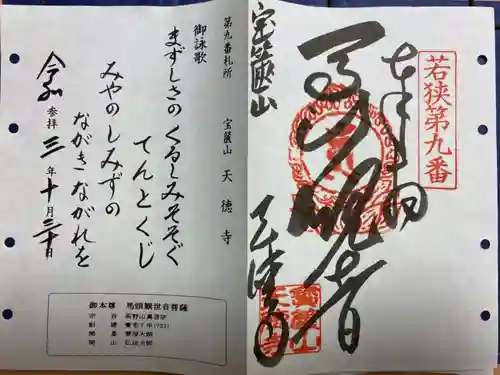 若狭第九番
奉拝
馬頭観音
宝篋山
天徳寺
第九番札所 宝篋山 天徳寺
御詠歌
まずしさの くるしみそそぐ
てんとくじ
みやのしみずの
ながきながれを
令和 参拝 三年十月三十日
御本尊 馬頭観世音菩薩
高野山真言宗
創建 養老7年(723)
開基 泰澄大師
開山 弘法大師